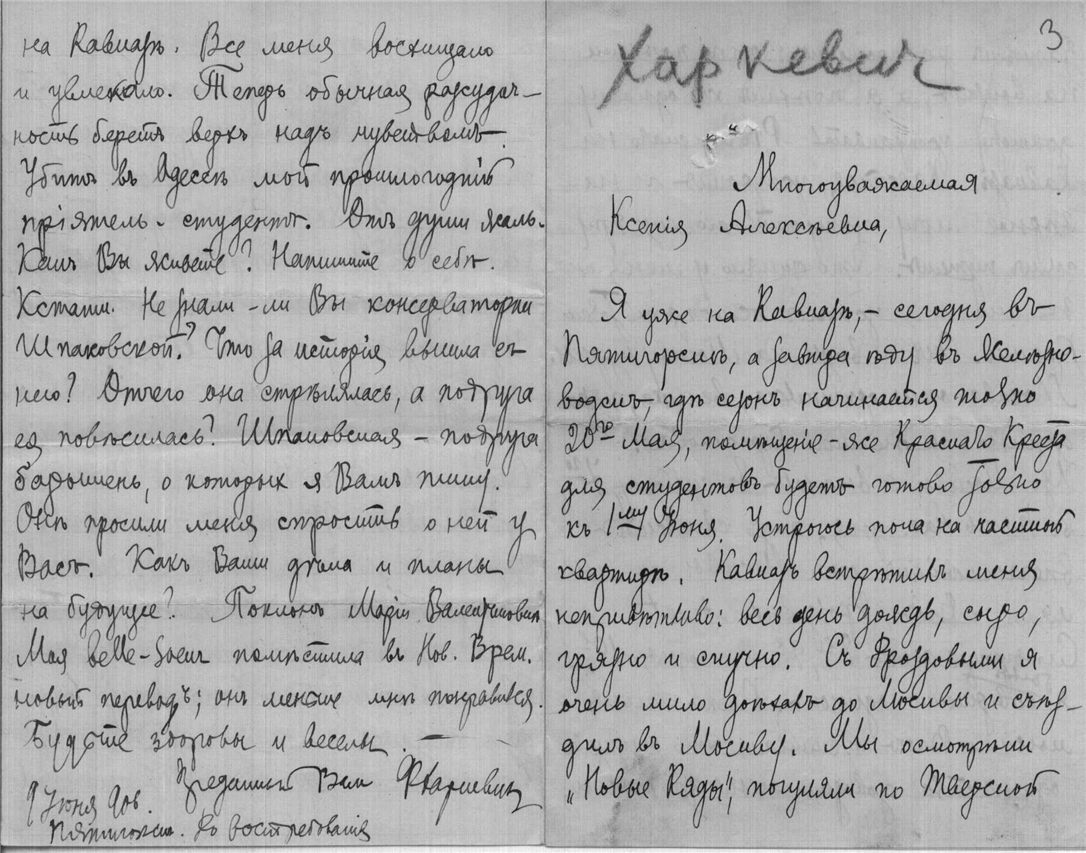 3
Харкевич
Многоуважаемая
Ксенія Алексѣевна,
Я уже на Кавказѣ, – сегодня въ
Пятигорскѣ, а завтра ѣду въ Желѣзно-
водскъ, гдѣ сезонъ начинается только
20го Мая, помѣщеніе-же Краснаго Креста
для студентовъ будетъ готово только
къ 1му Іюня. Устроюсь пока на частной
квартирѣ. Кавказъ встрѣтилъ меня
непривѣтливо: весь день дождь, сыро,
грязно и скучно. Съ Дроздовыми я
очень мило доѣхалъ до Москвы и съѣз-
дилъ въ Москву. Мы осмотрѣли
„Новые Ряды", погуляли по Тверской
на Кавказъ. Все меня восхищало
и увлекало. Теперь обычная разсудоч-
ность беретъ верхъ надъ чувствомъ.
Убитъ въ Одессѣ мой прошлогодній
пріятель-студентъ. Отъ души жаль.
Какъ Вы живете? Напишите о себѣ.
Кстати. Не знали-ли Вы консерваторки
Шпаковской? Что за исторія вышла съ
нею? Отчего она стрѣлялась, а подруга
ея повѣсилась? Шпаковская – подруга
барышень, о которыхъ я Вамъ пишу.
Онѣ просили меня спросить о ней у
Васъ. Какъ Ваши дѣла и планы
на будущее? Поклонъ Маріи Валентиновнѣ
Моя belle-soeur помѣстила въ Нов. Врем.
новый переводъ; онъ меньше мнѣ понравился.
Будьте здоровы и веселы. —
Преданный Вам ФХаркевичъ
9 Іюня 906.
Пятигорскъ. До востребованія